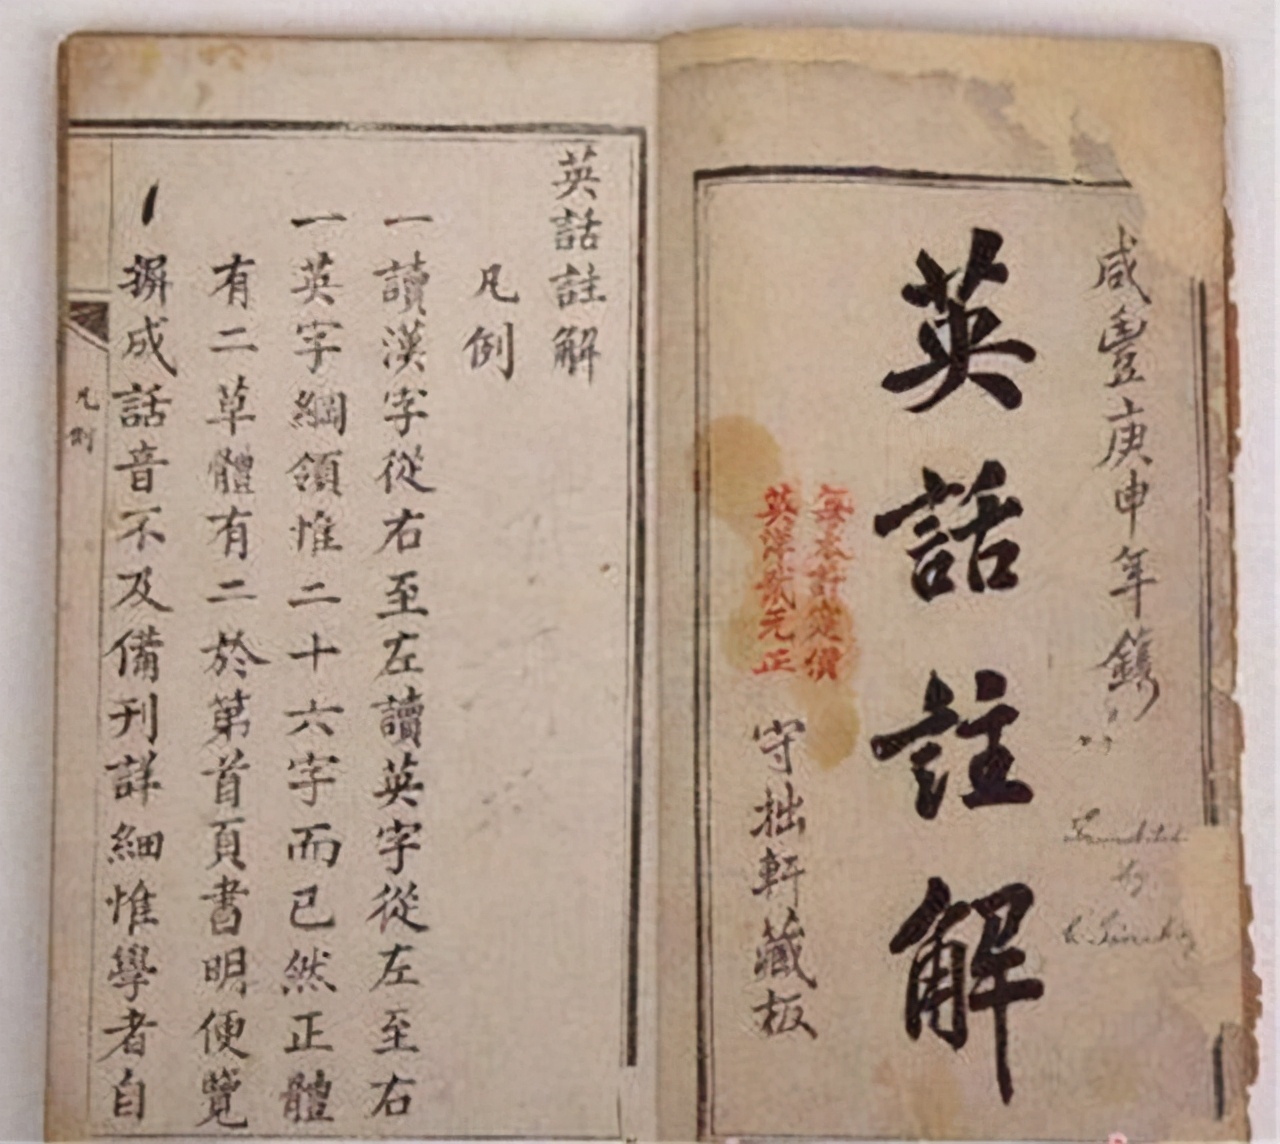 咸豐庚申年鐫
英話註解
每本計定價
英洋貳元正
守拙軒藏板
英話註解
凡例
一讀漢字從右至左讀英字從左至右
一英字綱領惟二十六字而已然正體
有二草體有二於第首頁書明便覽
一摒成話音不及備刊詳細惟學者自
凡例